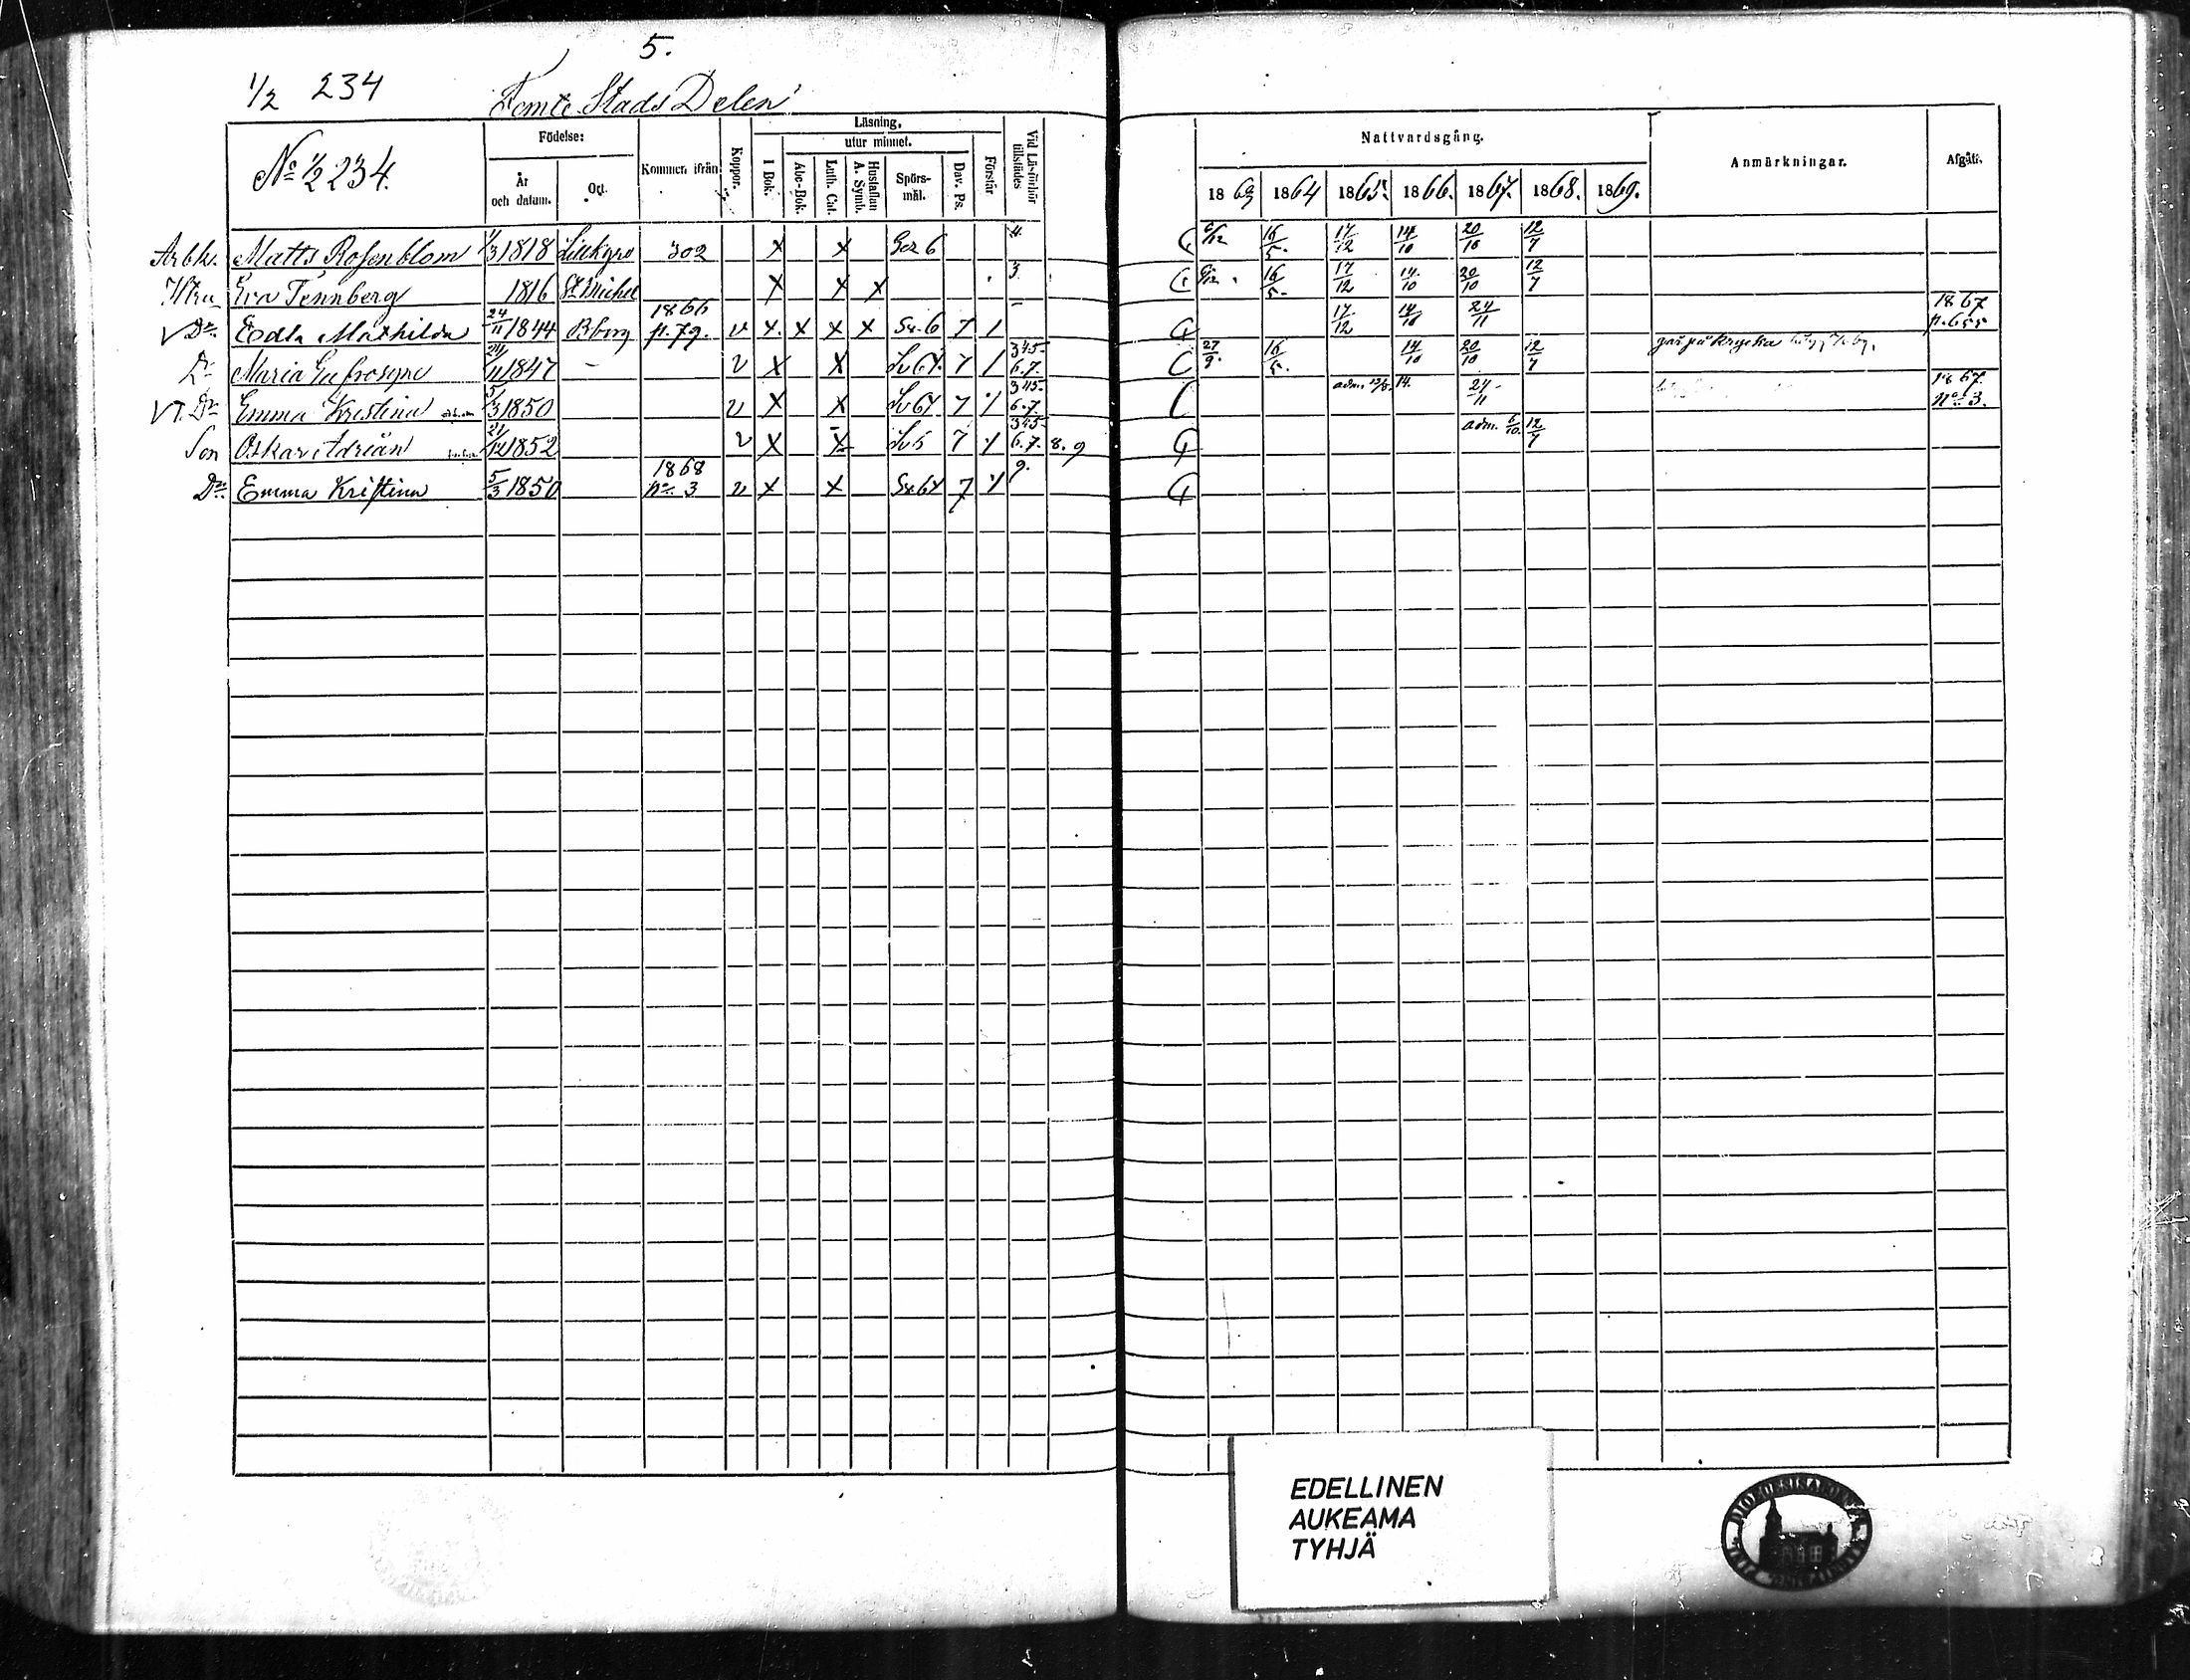 5.
1/2 234 Femte Stads Delen
No 1/2 234.
Födelse:
År och datum.
Ort.
Kommen ifrån
Koppor.
Läsning,
utur minnet.
I Bok.
Abc-Bok.
Luth. Cat.
Hustaflan A. Symb.
Spörsmål.
Dav. Ps.
Förstår
Vid Läsförhör tillstädes
Nattvardsgång.
1863 1864 1865. 1866. 1867. 1868. 1869.
Anmärkningar.
Afgått.
Arbk. Matts Rosenblom 1/3 1818 302 x x 6 4 6/12 16/5. 17/12 14/10 20/10 12/7
Hstru Eva Tennberg 1816 St Michel x x x 3. 6/12 16/5. 17/12 14/10 20/10 12/7
V Dr. Edla Mathilda 24/11 1844 Borg 1866 p. 79. v x. x x x Sv. 6 7 1 – 17/12 14/10 24/11 1867 p. 655
Dr Maria 24/11 1847 – v x x Sv 6 7 1 345. 6.7. 27/9. 16/5. 14/10 20/10 12/7 går på krycka
VT. Dr Emma Kristina 5/3 1850 v x x Sv 6 7 1 345. 6.7. adm. 14. 24/11 1867. No 3.
Son Oskar Adrian 21/12 1852 v x x Sv 5 7 1 345- 6.7. 8. 9 adm. 6/10. 12/7
Dr. Emma Kristina 5/3 1850 1868 No. 3 v x x Sv. 6 7 1 9.
EDELLINEN
AUKEAMA
TYHJÄ